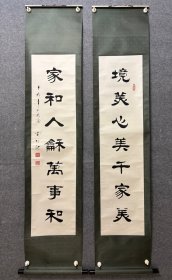 境美心美千家美
家和人龢萬事和